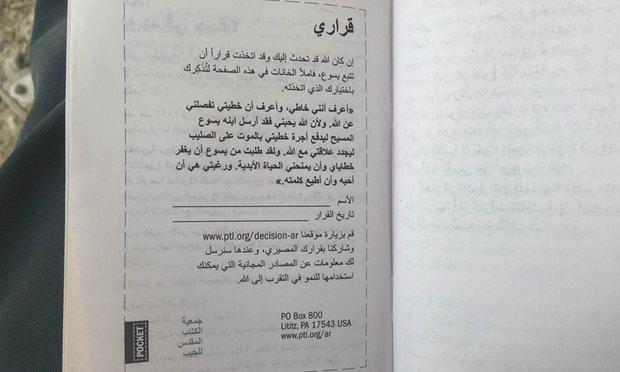 قراري
إن كان الله قد تحدث إليك وقد اتخذت قراراً أن
تتبع يسوع، فاملأ الخانات في هذه الصفحة لتُذكِرك
باختيارك الذي اتخذته.
«أعرف أنني خاطي، وأعرف أن خطيتي تفصلني
عن الله. ولأن الله يحبني فقد أرسل ابنه يسوع
المسيح ليدفع أجرة خطيتي بالموت على الصليب
ليجدد علاقتي مع الله. ولقد طلبت من يسوع أن يغفر
خطاياي وأن يمنحني الحياة الأبدية. ورغبتي هي أن
أحبه وأن أطيع كلمته.»
الأسم
تاريخ القرار
قم بزيارة موقعنا www.ptl.org/decision-ar
وشاركنا بقرارك المصيري، وعندها سنرسل
لك معلومات عن المصادر المجانية التي يمكنك
استخدامها للنمو في التقرب إلى الله.
PO Box 800
Lititz, PA 17543 USA
www.ptl.org/ar
جمعية
الكتاب
المقدس
للجيب
POCKET